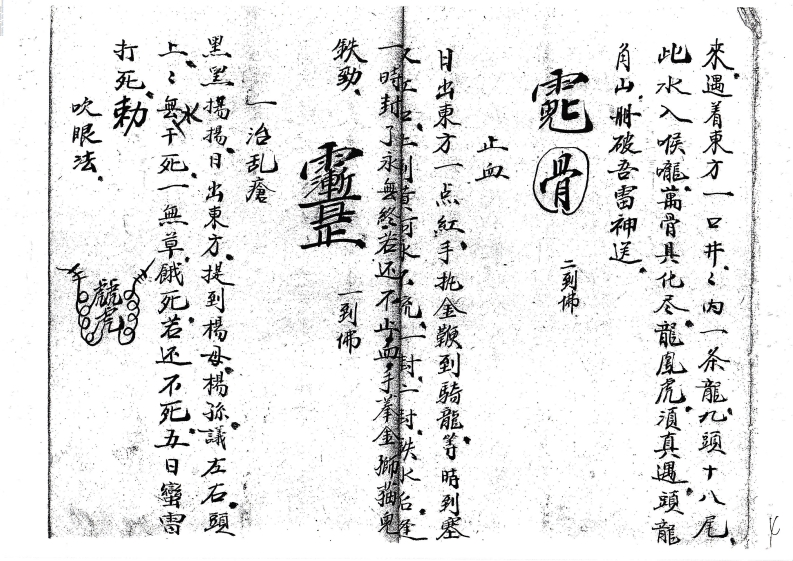 來遇着東方一口井〻內一条龍九頭十八尾
此水入喉嚨萬骨具化尽龍鳳虎湏真遇頭龍
角山冊破吾雷神送
骨
二到佛
止血
日出東方一点紅手扡金鞭到騎龍等時到塞
黄河水不流一封二封鉄水后
一時封了永無終若还不止血手拳金獅猫兒
鉄勁
一到佛
一治乱瘡
黑黑揚揚日出東方提到楊母楊孫議左右頭
上〻無水干死一無草餓死若还不死五日蠻雷
打死勅
吹眼法
龍虎